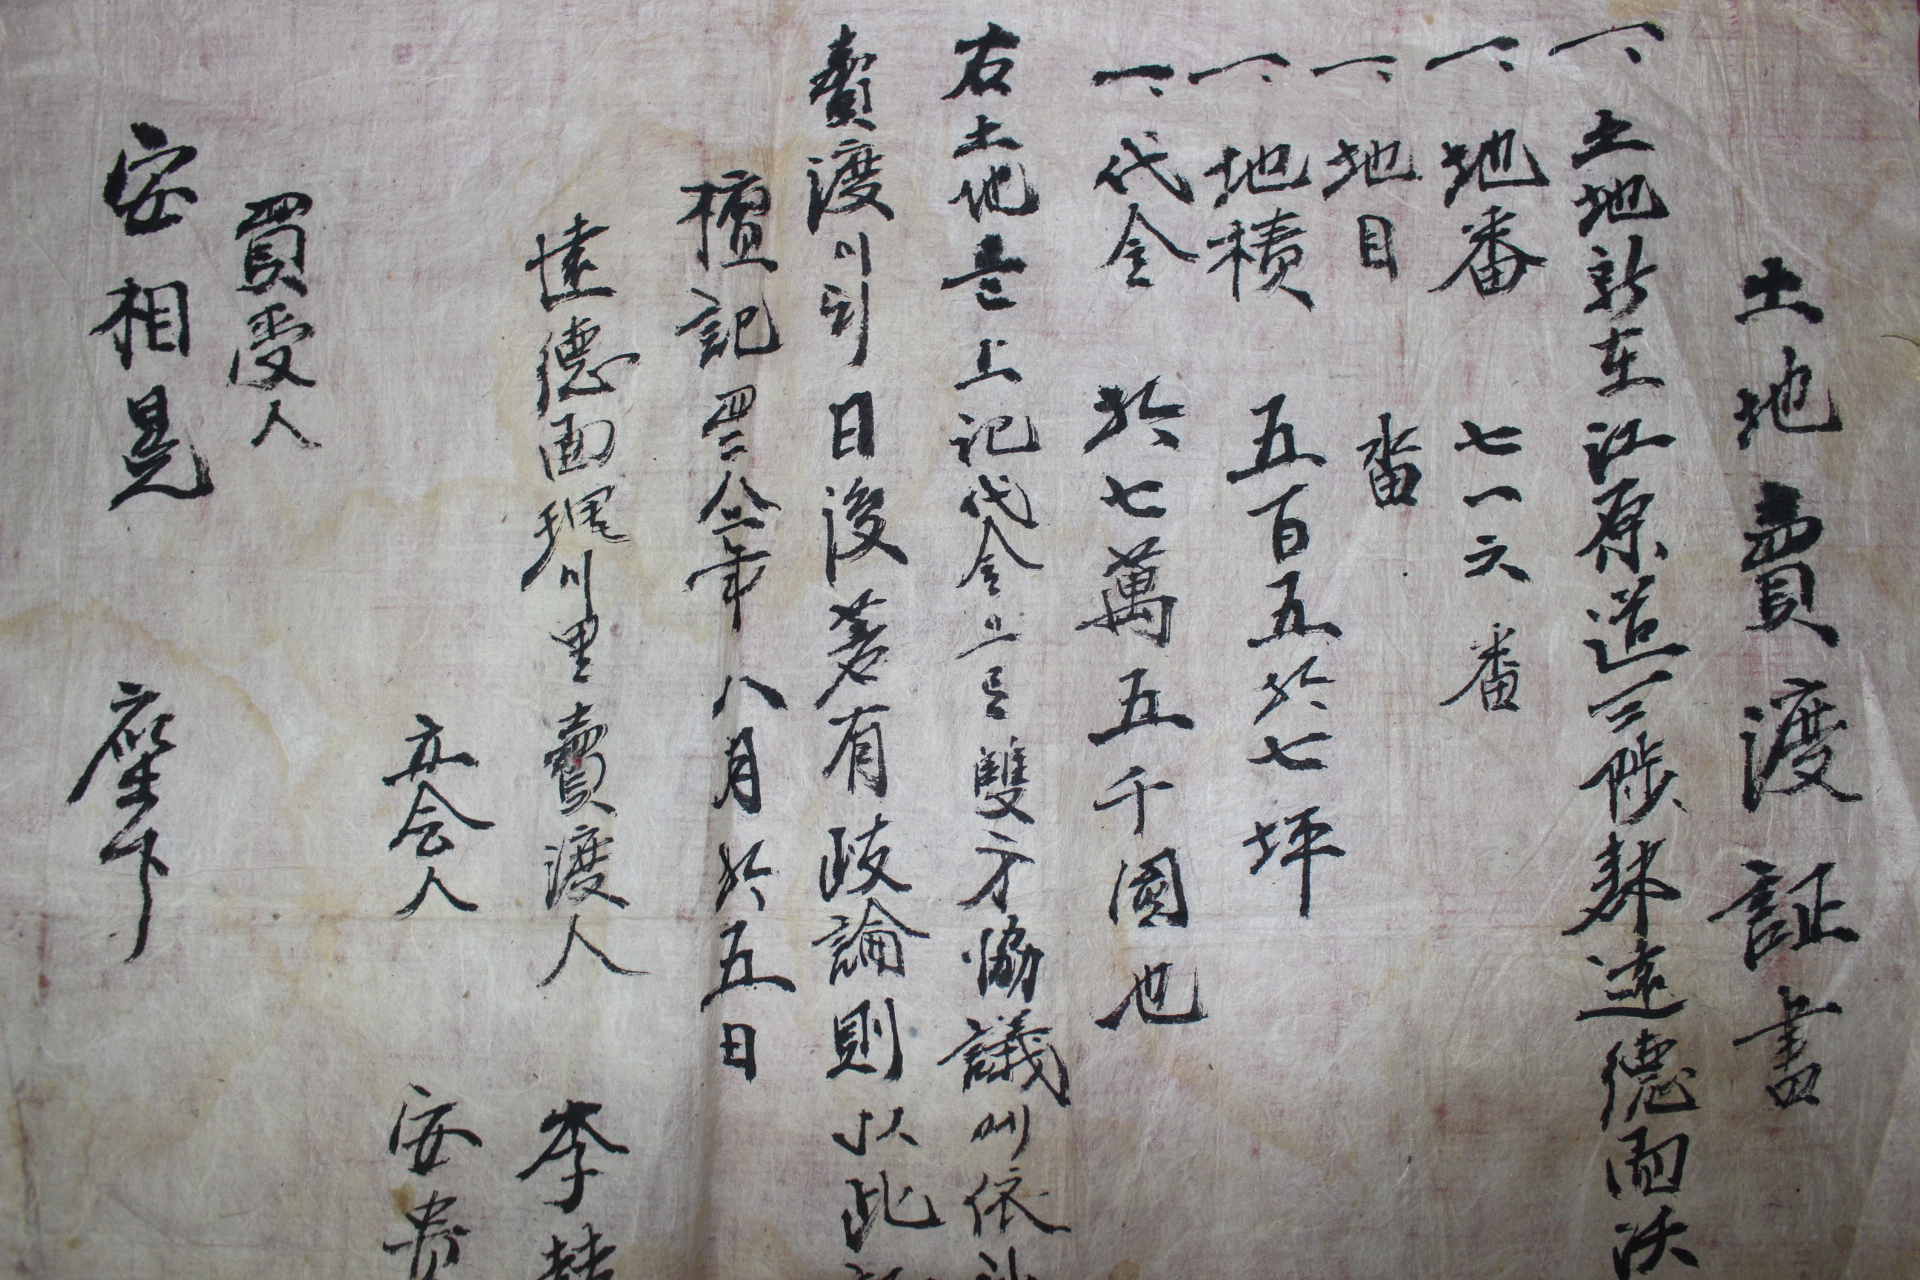 土地賣渡証書
一、土地所在江原道三陟郡遠德面沃
一、地番 七一六番
一、地目 畓
一、地積 五百五拾七坪
一、代金 拾七萬五千圜也
右土地를 上記代金으로 雙方協議에 依
賣渡이되 日後若有歧論則以此
檀記四二八八年 八月拾五日
遠德面 川里 賣渡人 李
立会人 安
買受人
安相晃 座下